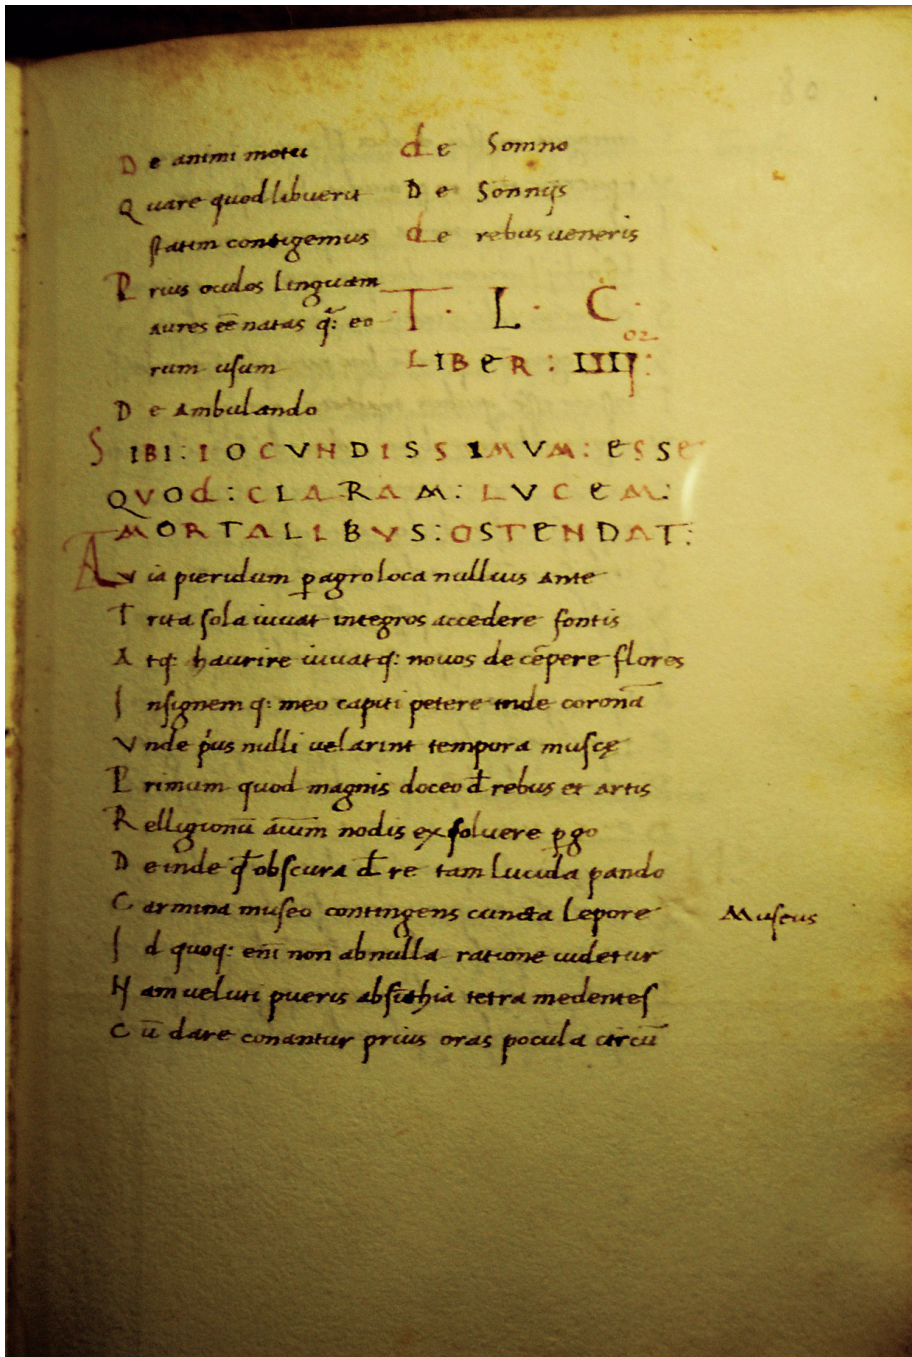 De animi motu
Quare quod libuerit
statim contigemus
Prius oculos linguam
aures eē natas q̄: eo
rum usum
De ambulando
de Somno
De Sonnijs
de rebus ueneris
T · L · C ·
LIBER : IIIJ:
SIBI: IOCVNDISSIMVM: ESSE
QVOd: CLARAM: LVCEM:
MORTALIBVS: OSTENDAT:
AVia pieridum ꝑagro loca nullius ante
Trita sola iuuat integros accedere fontis
Atq: haurire iuuatq: nouos decēpere flores
Insignem q: meo capiti petere inde coronā
Vnde p'us nulli uelarint tempora muscę
Primum quod magnis doceo d̄ rebus et artis
Relligionū aīum nodis exsoluere ꝑgo
Deinde q̄d obscura d̄ re tam lucida pando
Carmina museo contingens cuncta lepore
Museus
Id quoq: enī non abnulla ratione uidetur
Nam ueluti pueris absīthia tetra medentes
Cū dare conantur prius oras pocula circū